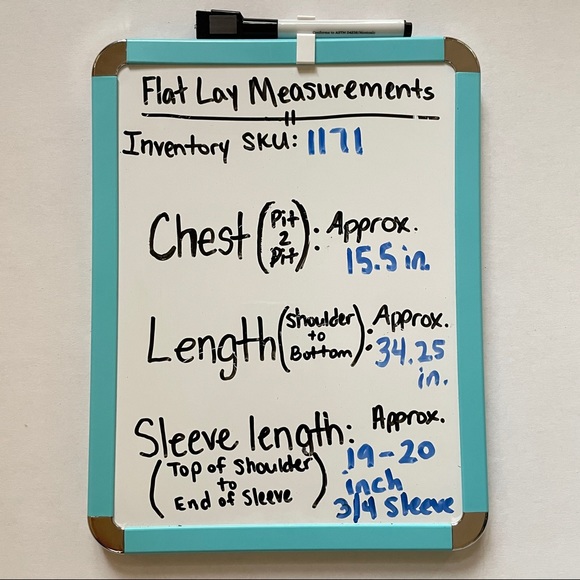 Flat Lay Measurements
Inventory SKU: 1171
Chest (Pit 2 Pit): Approx.
15.5 in.
Length (Shoulder to Bottom): Approx.
34.25
in.
Sleeve length: Approx.
(Top of Shoulder to End of Sleeve)
19-20
inch
3/4 Sleeve